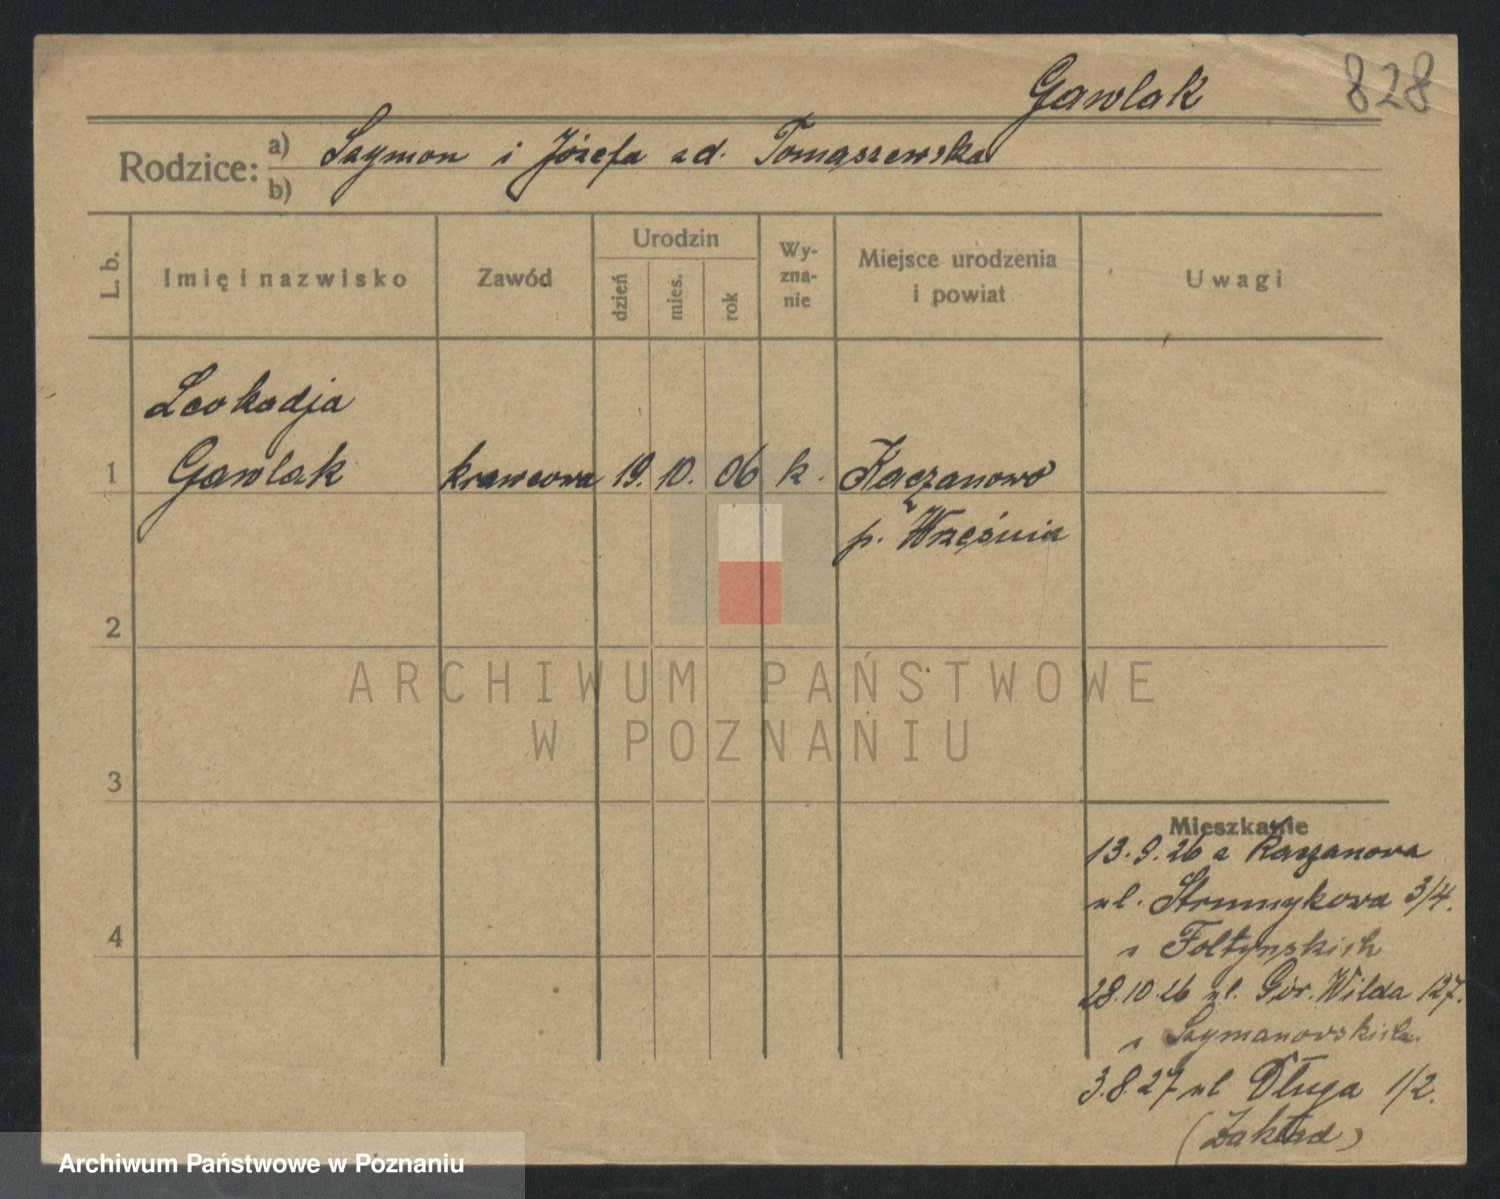 Gawlak
828
Rodzice: a) Szymon i Józefa zd. Tomaszewska
b)
L. b.
Imię i nazwisko
Zawód
Urodzin
dzień
mies.
rok
Wy-
zna-
nie
Miejsce urodzenia
i powiat
Uwagi
Leokadja
1 Gawlak krawcowa 19. 10. 06 k. Kaczanowo
p. Września
2
ARCHIWUM PAŃSTWOWE
W POZNANIU
3
Mieszkanie
13.9.26 z Kaczanowa
ul. Strumykowa 3/4.
4
u Fołtyńskich
28.10.26 ul. Gór. Wilda 127.
u Szymanowskich
3.8.27 ul Długa 1/2.
(Zakład)
Archiwum Państwowe w Poznaniu